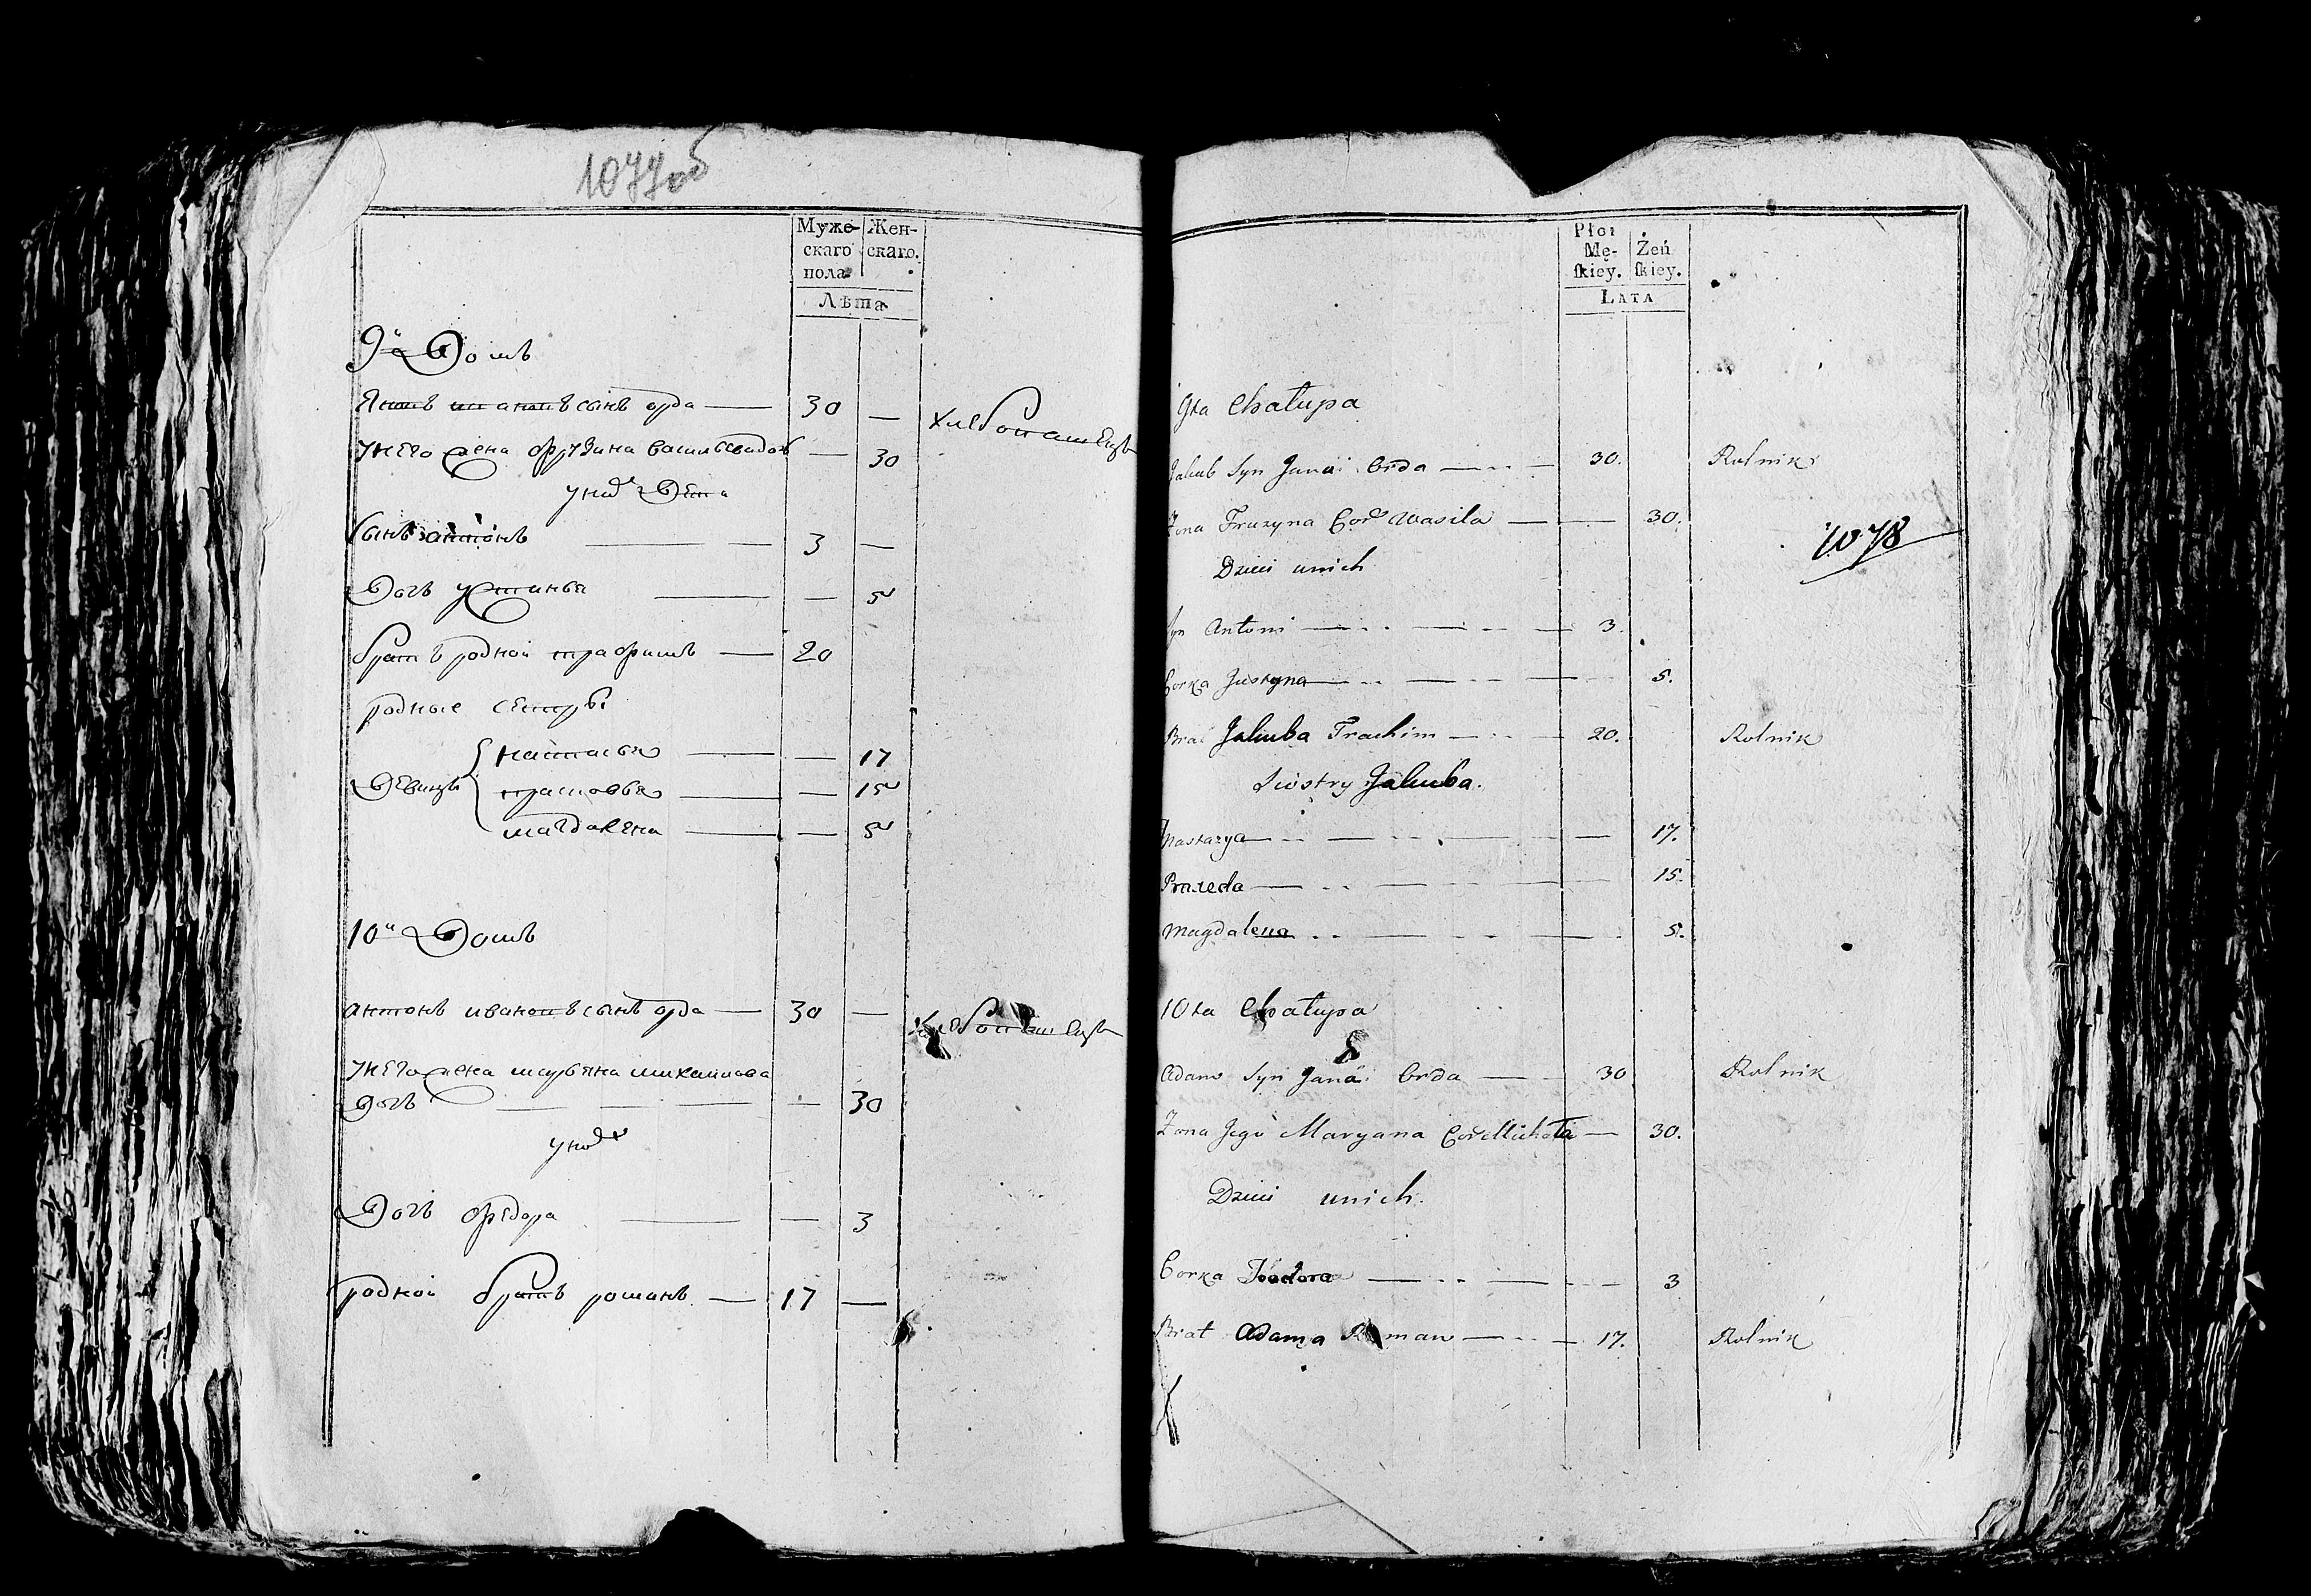 1077об
Муже-
скаго
пола
Жен-
скаго.
Лѣта
9й Домъ
Яковъ ивановъ сынъ орда — 30 —
у него жена фрузина васильева дочь — 30
у них Дети
Сынъ антонъ — 3 —
Дочь устинья — 5
братъ родной трафимъ — 20
родные сестры
Девицы
настасья — 17
прасковья — 15
магдалена — 5
Хлебопашецъ
10й Домъ
антонъ ивановъ сынъ орда — 30 —
у него жена марьяна михайлова
дочь — 30
у них
Дочь федора — 3
родной братъ романъ — 17 —
Хлебопашецъ
Płci
Mę-
ſkiey.
Żeń
ſkiey.
LATA
9ta Chałupa
Jakub Syn Jana Orda — 30. Rolnik
Żona Fruzyna Cor Wasila — 30.
1078
Dzieci unich
Syn Antoni — 3.
Corka Justyna — 5.
Brat Jakuba Trachim — 20. Rolnik
Siostry Jakuba.
Nastazya — 17.
Praxeda — 15.
Magdalena — 5.
10ta Chałupa
Adam Syn Jana Orda — 30 Rolnik
Żona Jego Maryana Cor Michała — 30.
Dzieci unich.
Corka Teodora — 3
Brat Adama Roman — 17. Rolnik